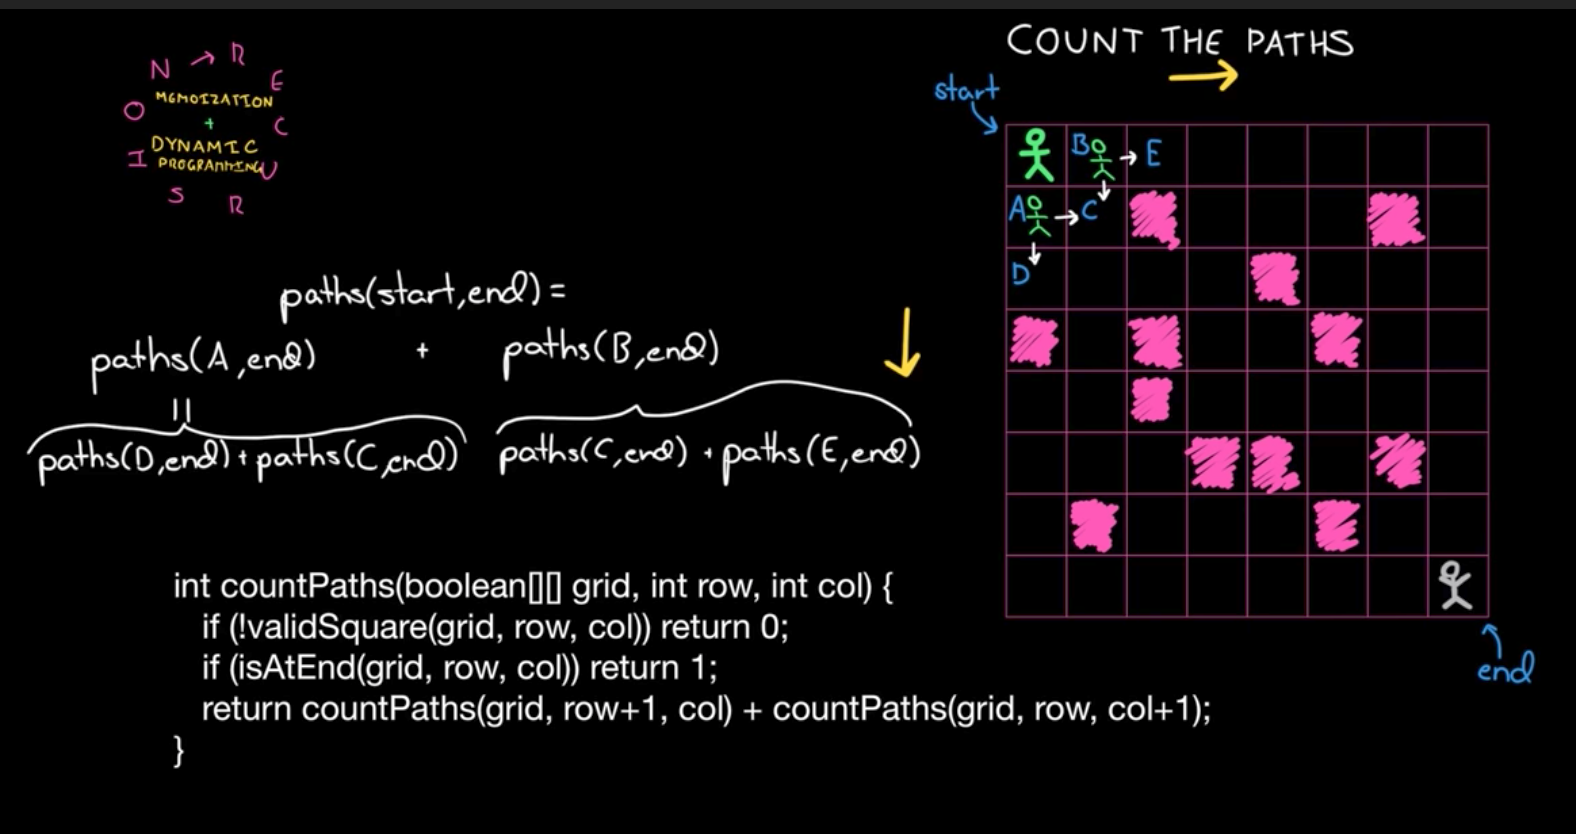 COUNT THE PATHS
RECURSION
MEMOIZATION
+
DYNAMIC
PROGRAMMING
start
B E
A C
D
paths(start,end) =
paths(A,end) + paths(B,end)
||
paths(D,end) + paths(C,end) paths(C,end) + paths(E,end)
int countPaths(boolean[][] grid, int row, int col) {
if (!validSquare(grid, row, col)) return 0;
if (isAtEnd(grid, row, col)) return 1;
return countPaths(grid, row+1, col) + countPaths(grid, row, col+1);
}
end